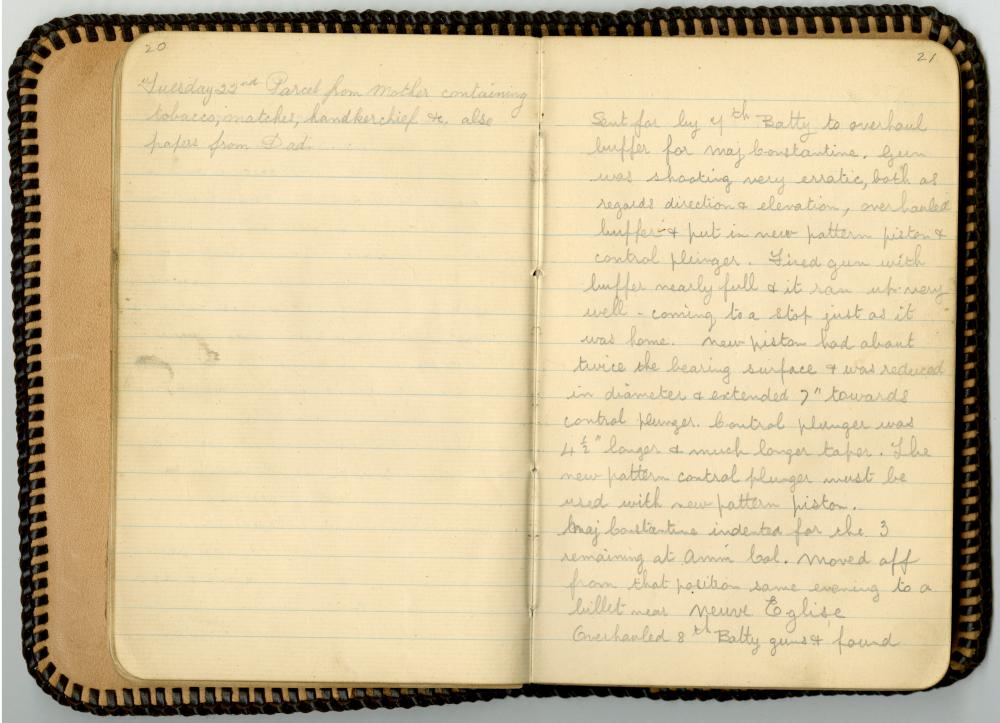 20
Tuesday 22nd Parcel from Mother containing
tobacco, matches, handkerchief &c. also
papers from Dad.
21
Sent for by 7th Batty to overhaul
buffer for Maj Constantine. Gun
was shooting very erratic, both as
regards direction & elevation, overhauled
buffer & put in new pattern piston &
control plunger. Fired gun with
buffer nearly full & it ran up very
well - coming to a stop just as it
was home. New piston had about
twice the bearing surface & was reduced
in diameter & extended 7" towards
control plunger. Control plunger was
4½" longer & much longer taper. The
new pattern control plunger must be
used with new pattern piston.
Maj Constantine indented for the 3
remaining at Amm Col. Moved off
from that position same evening to a
billet near Neuve Eglise
Overhauled 8th Batty guns & found